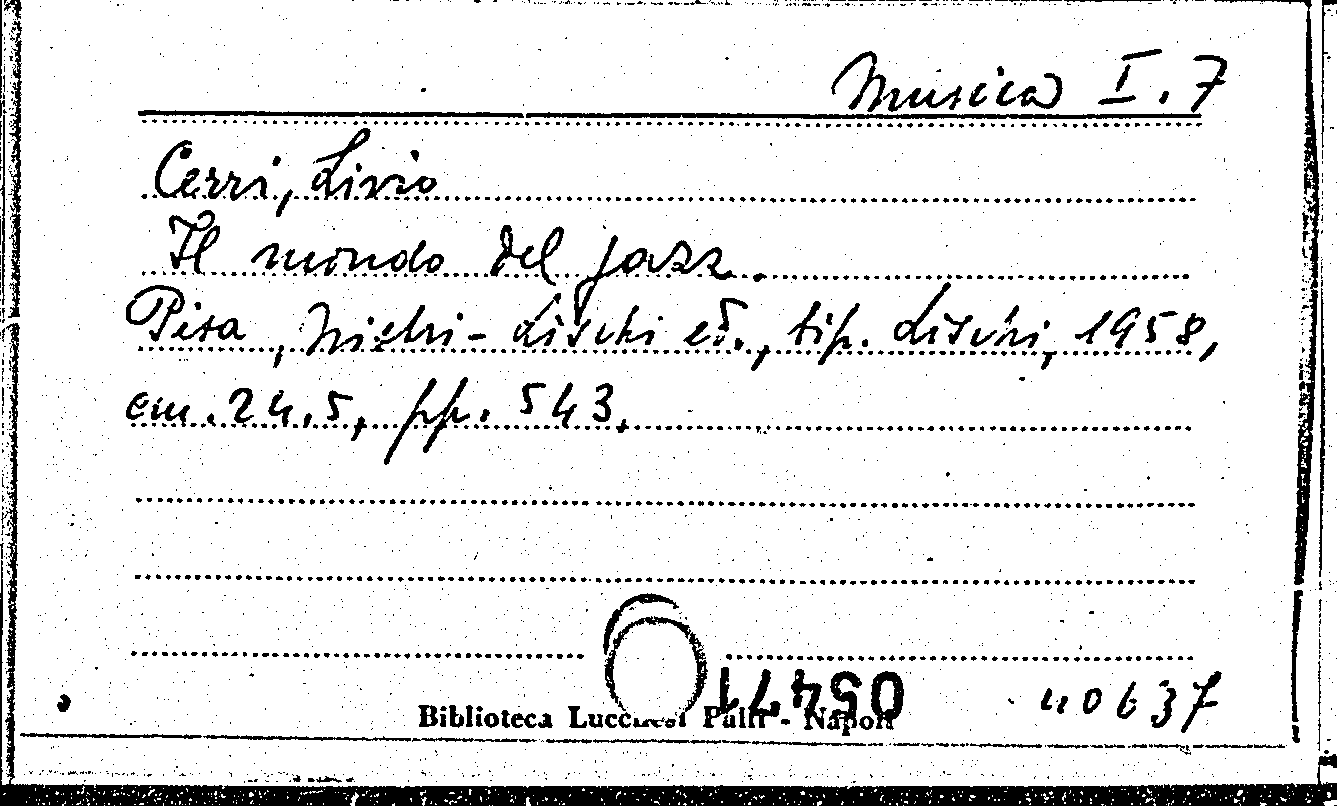 Musica I.7
Cerri, Livio
Il mondo del jazz.
Pisa, Nistri-Lischi ed., tip. Lischi, 1958,
cm. 24,5, pp. 543.
05471
40637
Biblioteca Lucchesi Palli - Napoli